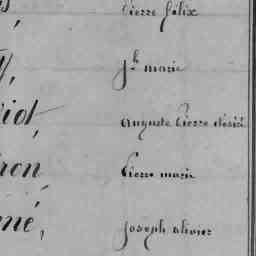 Pierre félix
Jh marie
iot, Auguste Pierre désiré
ron Pierre marie
né, Joseph olivier